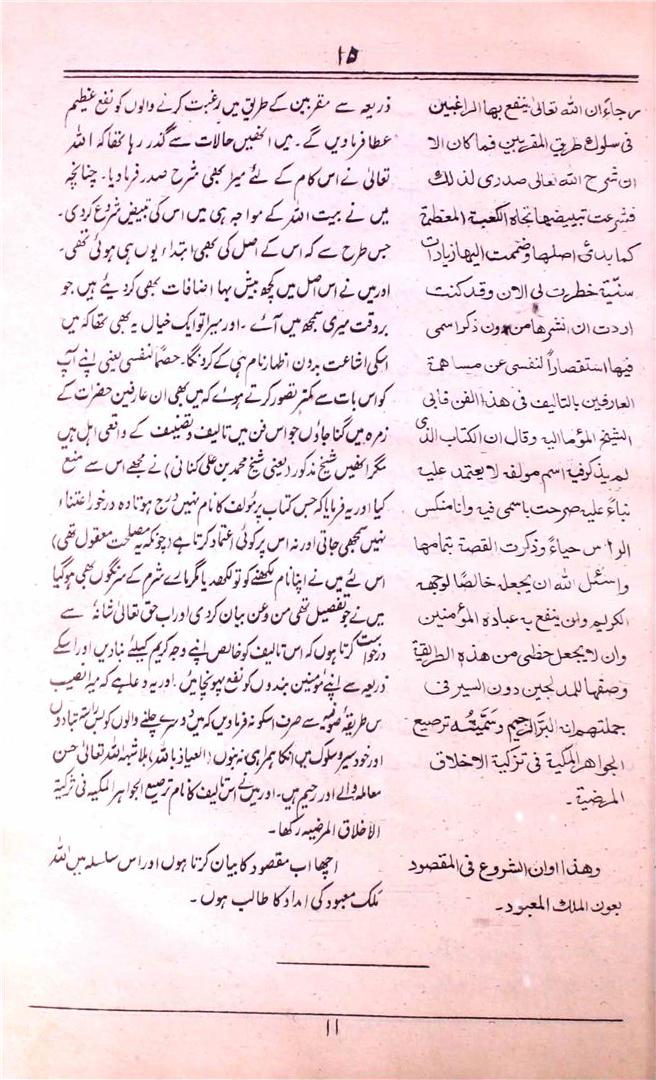 ۱۵
رجاءً ان الله تعالىٰ ينفع بها الراغبين
فى سلوك طريق المقربين فما كان الا
ان شرح الله تعالى صدرى لذلك
فشرعت تبييضها تجاه الكعبة المعظمة
كما بدئ اصلها وضممت اليها زيادات
سنيّة خطرت لى الان وقد كنت
اردت ان نشرها من دون ذكر اسمى
فيها استقصاراً لنفسى عن مساهمة
العارفين بالتاليف فى هذا الفن فابى
الشيخ المؤما اليه وقال ان الكتاب الذى
لم يذكر فيه اسم مولفه لا يعتمد عليه
بناءً عليه صرحت باسمى فيه وانا منكس
الراس حياءً وذكرت القصة بتمامها
واسئل الله ان يجعل خالصًا لوجهه
الكريم ولن ينفع به عباده المؤمنين
وان لا يجعل حظى من هذه الطريقة
وصفها للمدلجين دون السير فى
جملتهم انه البرّ الرحيم وسَمَّيتُه ترصيع
الجواهر المكية فى تزكية الاخلاق
المرضية۔
وهذا اوان الشروع فى المقصود
بعون الملك المعبود۔
ذریعہ سے مقربین کے طریق میں رغبت کرنے والوں کو نفع عظیم
عطا فرمادیں گے۔ میں انھیں حالات سے گذر رہا تھا کہ اللہ
تعالیٰ نے اس کام کے لئے میرا بھی شرح صدر فرمادیا۔ چنانچہ
میں نے بیت اللہ کے مواجہ ہی میں اس کی تبییض شروع کردی۔
جس طرح سے کہ اس کے اصل کی بھی ابتداء یوں ہی ہوئی تھی۔
اور میں نے اس اصل میں کچھ بیش بہا اضافات بھی کردیئے ہیں جو
بروقت میری سمجھ میں آئے۔ اور میرا تو ایک خیال یہ بھی تھا کہ میں
اسکی اشاعت بدون اظہار نام ہی کے کردونگا۔ ہضماً لنفسی یعنی اپنے آپ
کو اس بات سے کمتر تصور کرتے ہوئے کہ میں بھی ان عارفین حضرات کے
زمرہ میں گنا جاؤں جو اس فن میں تالیف و تصنیف کے واقعی اہل ہیں
مگر انھیں شیخ مذکور (یعنی شیخ محمد بن علی کنانی) نے مجھے اس سے منع
کیا اور یہ فرمایا کہ جس کتاب پر مؤلف کا نام نہیں درج ہوتا وہ درخور اعتنا
نہیں سمجھی جاتی اور نہ اس پر کوئی اعتماد کرتا ہے (چونکہ یہ مصلحت معقول تھی)
اس لئے میں نے اپنا نام لکھنے کو تو لکھدیا مگر مارے شرم کے سرنگوں بھی ہوگیا
میں نے جو تفصیل تھی من و عن بیان کردی اور اب حق تعالیٰ شانہٗ سے
درخواست کرتا ہوں کہ اس تالیف کو خالص اپنے وجہ کریم کیلئے بنادیں اور اسکے
ذریعہ سے اپنے مؤمنین بندوں کو نفع پہونچائیں۔ اور یہ دعا ہے کہ میرا نصیب
س طریقۂ صوفیہ سے صرف اسکو نہ فرمادیں کہ میں دوسرے چلنے والوں کو بس راستہ بتادوں
اور خود سیر و سلوک میں انکا ہمراہی نہ بنوں (العیاذ باللہ) بلاشبہ اللہ تعالیٰ حسن
معاملہ والے اور رحیم ہیں۔ اور میں نے اس تالیف کا نام ترصیع الجواہر المکیہ فی تزکیۃ
الاخلاق المرضیہ رکھا۔
اچھا اب مقصود کا بیان کرتا ہوں اور اس سلسلہ میں اللہ
ملک معبود کی امداد کا طالب ہوں۔
۱۱